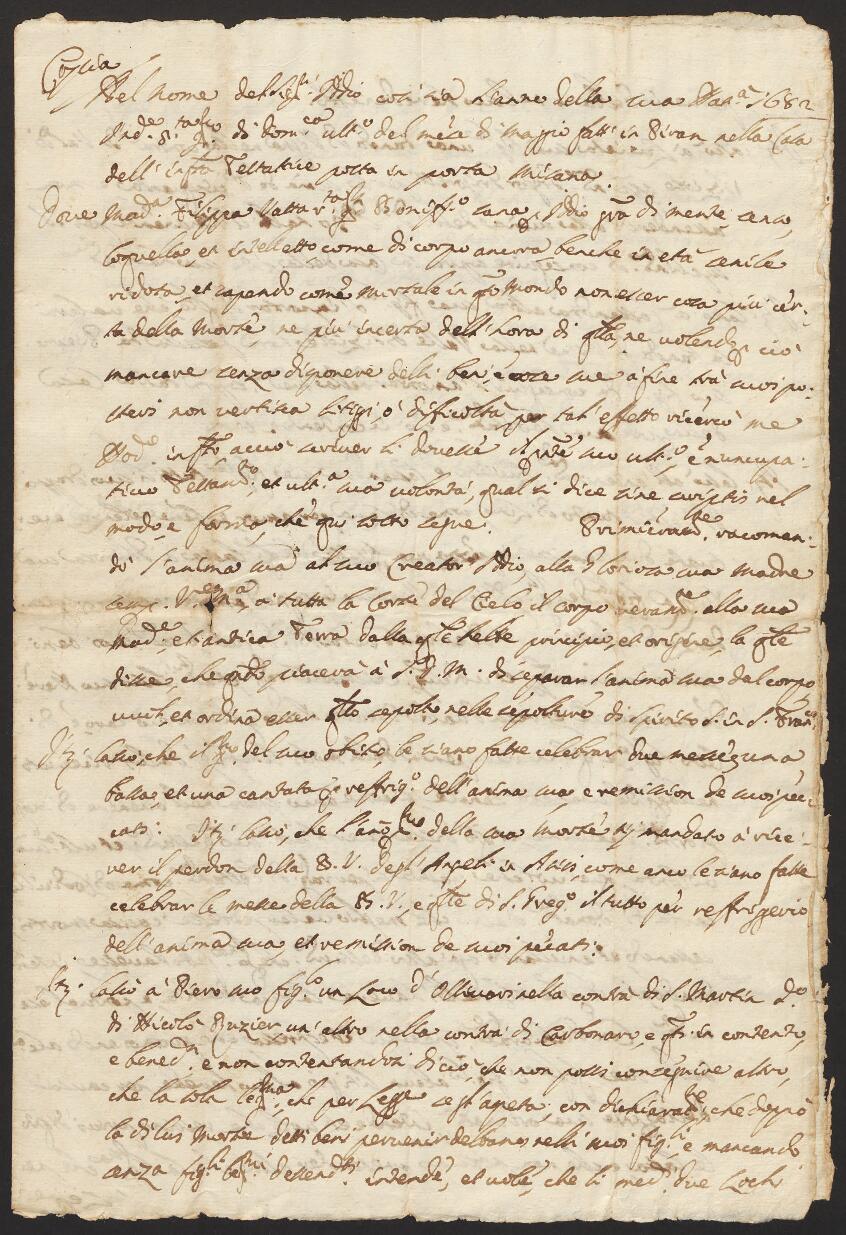 Coppia
Nel Nome del Sig.r Iddio così sia l'anno della sua Nan.a 1682
Ind.e 5.ta g.no di Dom.ca ult.o del mese di Maggio fatti in Piran nella Casa
dell' infra Testatrice posta in porta Misana.
Dove Mad.a Filippa sana Iddio gra di mente, senso,
loquella, et intelletto, come di corpo ancora, benche in età senile
ridota, et sapendo come Mortale in qto Mondo non esser cosa più cer-
ta della Morte, ne più incerta dell' hora di qlla, ne volendo ciò
mancare senza disponere delli beni, e cose sue à fine trà suoi po-
steri non vertisca litiggi, ò difficoltà, per tal' effetto ricercò me
Nod.o infto, acciò scriver li dovesse il pnte suo ult.o, e nuncupa-
tivo Testam.to, et ult.a sua volontà, qual si dice sine scriptis nel
modo, e forma, che qui sotto segue. Primieram.te racoman-
dò l'anima sua al suo Creator Iddio, alla Gloriosa sua Madre
semp. V. M.a, à tutta la Corte del Cielo il corpo veram.te alla sua
Mad.e, et antica Terra dalla qle hebbe principio, et origine, la qle
disse, che qdo piacerà à S. D. M. di separar l'anima sua dal corpo
vuol, et ordina esser qllo sepolto nelle sepolture di Spirito S. in S. Fran.co
Itt: lasciò, che il gno del suo obito, le siano fatte celebrar due messe, una
bassa, et una cantata p reffrig.o dell'anima sua, e remission de suoi pec-
cati: Itt: lasciò, che l'anno della sua Morte sij mandato à rice-
ver il perdon della B. V. degl' Angeli in Asisi, come anco le siano fatte
celebrar le messe della B. V., e qlle di S. Greg.o il tutto per reffrigerio
dell'anima sua, et remission de suoi peccati:
Itt: lasciò à Piero suo fig.lo un Loco d' Ollivari nella contrà di S. Martin d.o
di Nicolò Ruzier, un' altro nella contrà di Carbonaro, e qsti in contento,
e bened.n, e non contentandosi di ciò, che non possi conseguire altro,
che la sola leg.ma, che per Legge se gl'aspeta, con dichiarat.ne, che doppò
la di lui Morte detti beni pervenir debbano nelli suoi figl.i, e mancando
senza figl.i leg.mi dessend.ti intende, et vole, che li med.i due Lochi